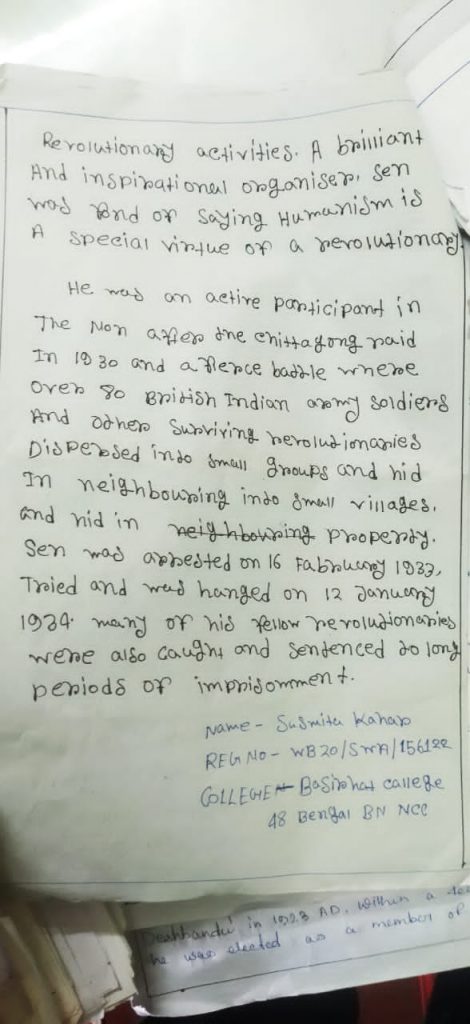 Revolutionary activities. A brilliant
And inspirational organiser, sen
was fond of saying Humanism is
A special virtue of a revolutionary.
He was an active participant in
The Non after the chittagong raid
In 1930 and a fierce battle where
over 80 British Indian army soldiers
And other surviving revolutionaries
Dispersed into small groups and hid
In neighbouring into small villages,
and hid in neighbouring property.
Sen was arrested on 16 Fabruary 1933,
Tried and was hanged on 12 January
1934. many of his fellow revolutionaries
were also caught and sentenced to long
periods of imprisomment.
Name - Susmita Kahar
REG NO - WB20/SWA/156122
COLLEGE - Basirhat college
48 Bengal BN NCC
in 1923 AD. within a
he was elected as a member of